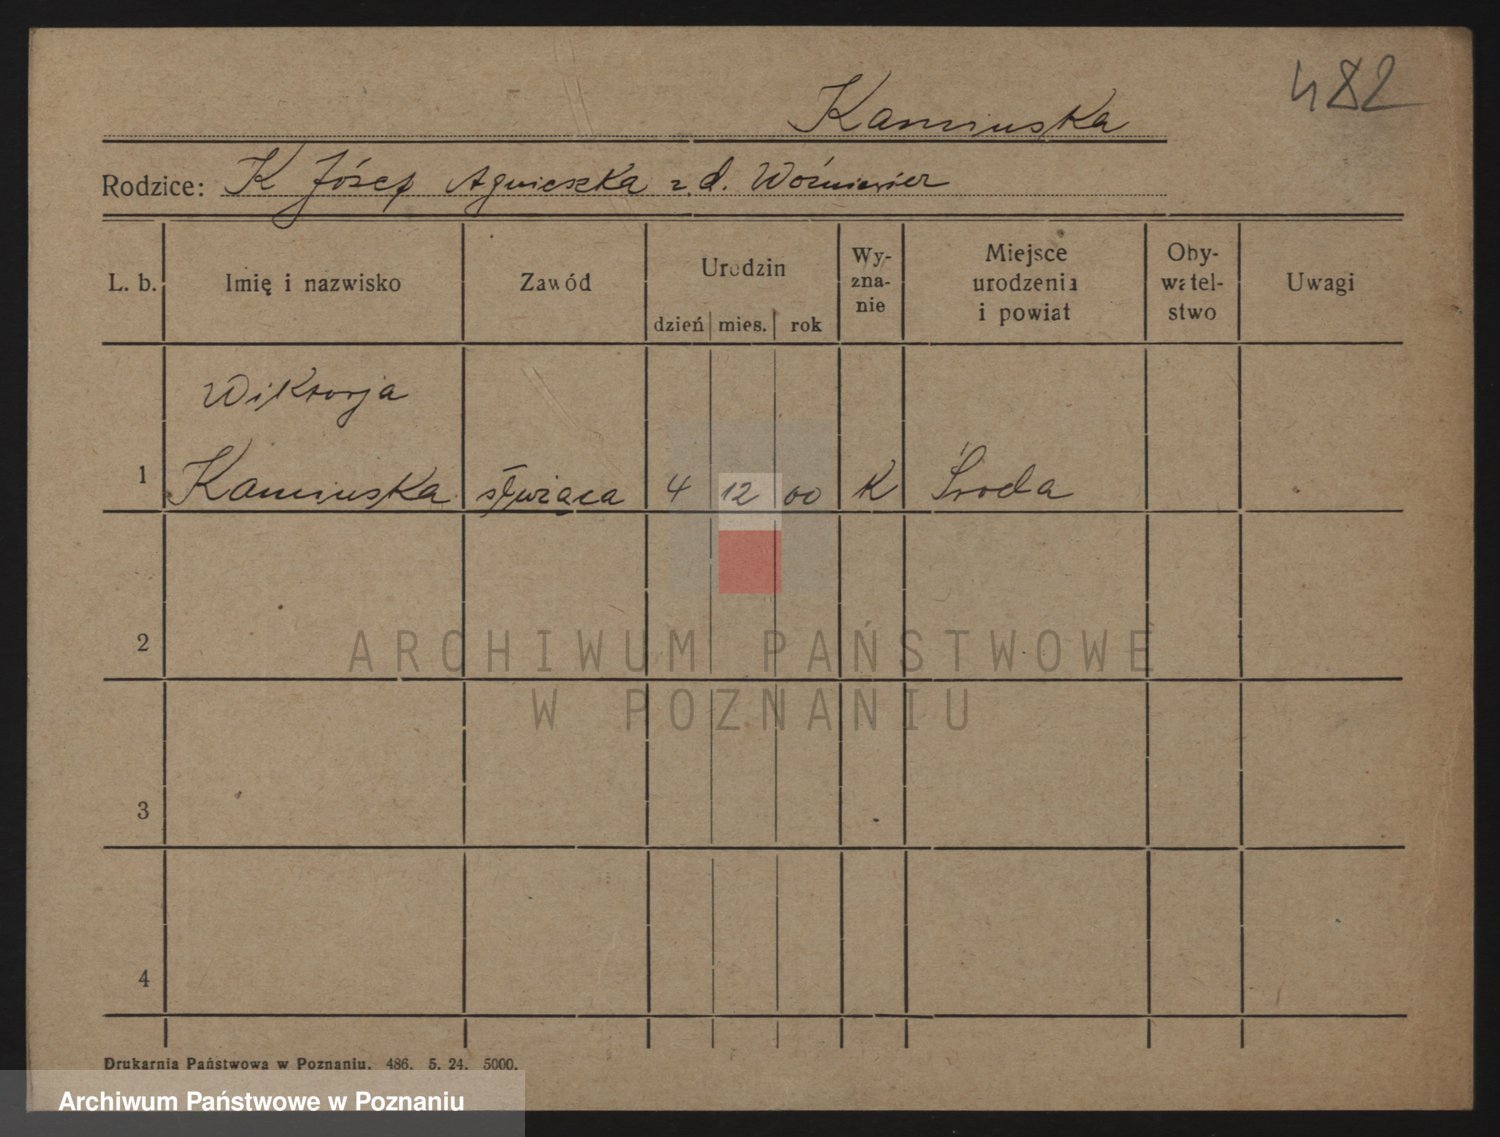 482
Kaminska
Rodzice: K Józef Agnieszka z d.
L. b. Imię i nazwisko Zawód Urodzin Wy- Miejsce Oby- Uwagi
zna- urodzenia watel-
nie i powiat stwo
dzień mies. rok
Wiktorja
1 Kaminska służąca 4 12 00 K Środa
2
ARCHIWUM PAŃSTWOWE
W POZNANIU
3
4
Drukarnia Państwowa w Poznaniu. 486. 5. 24. 5000.
Archiwum Państwowe w Poznaniu